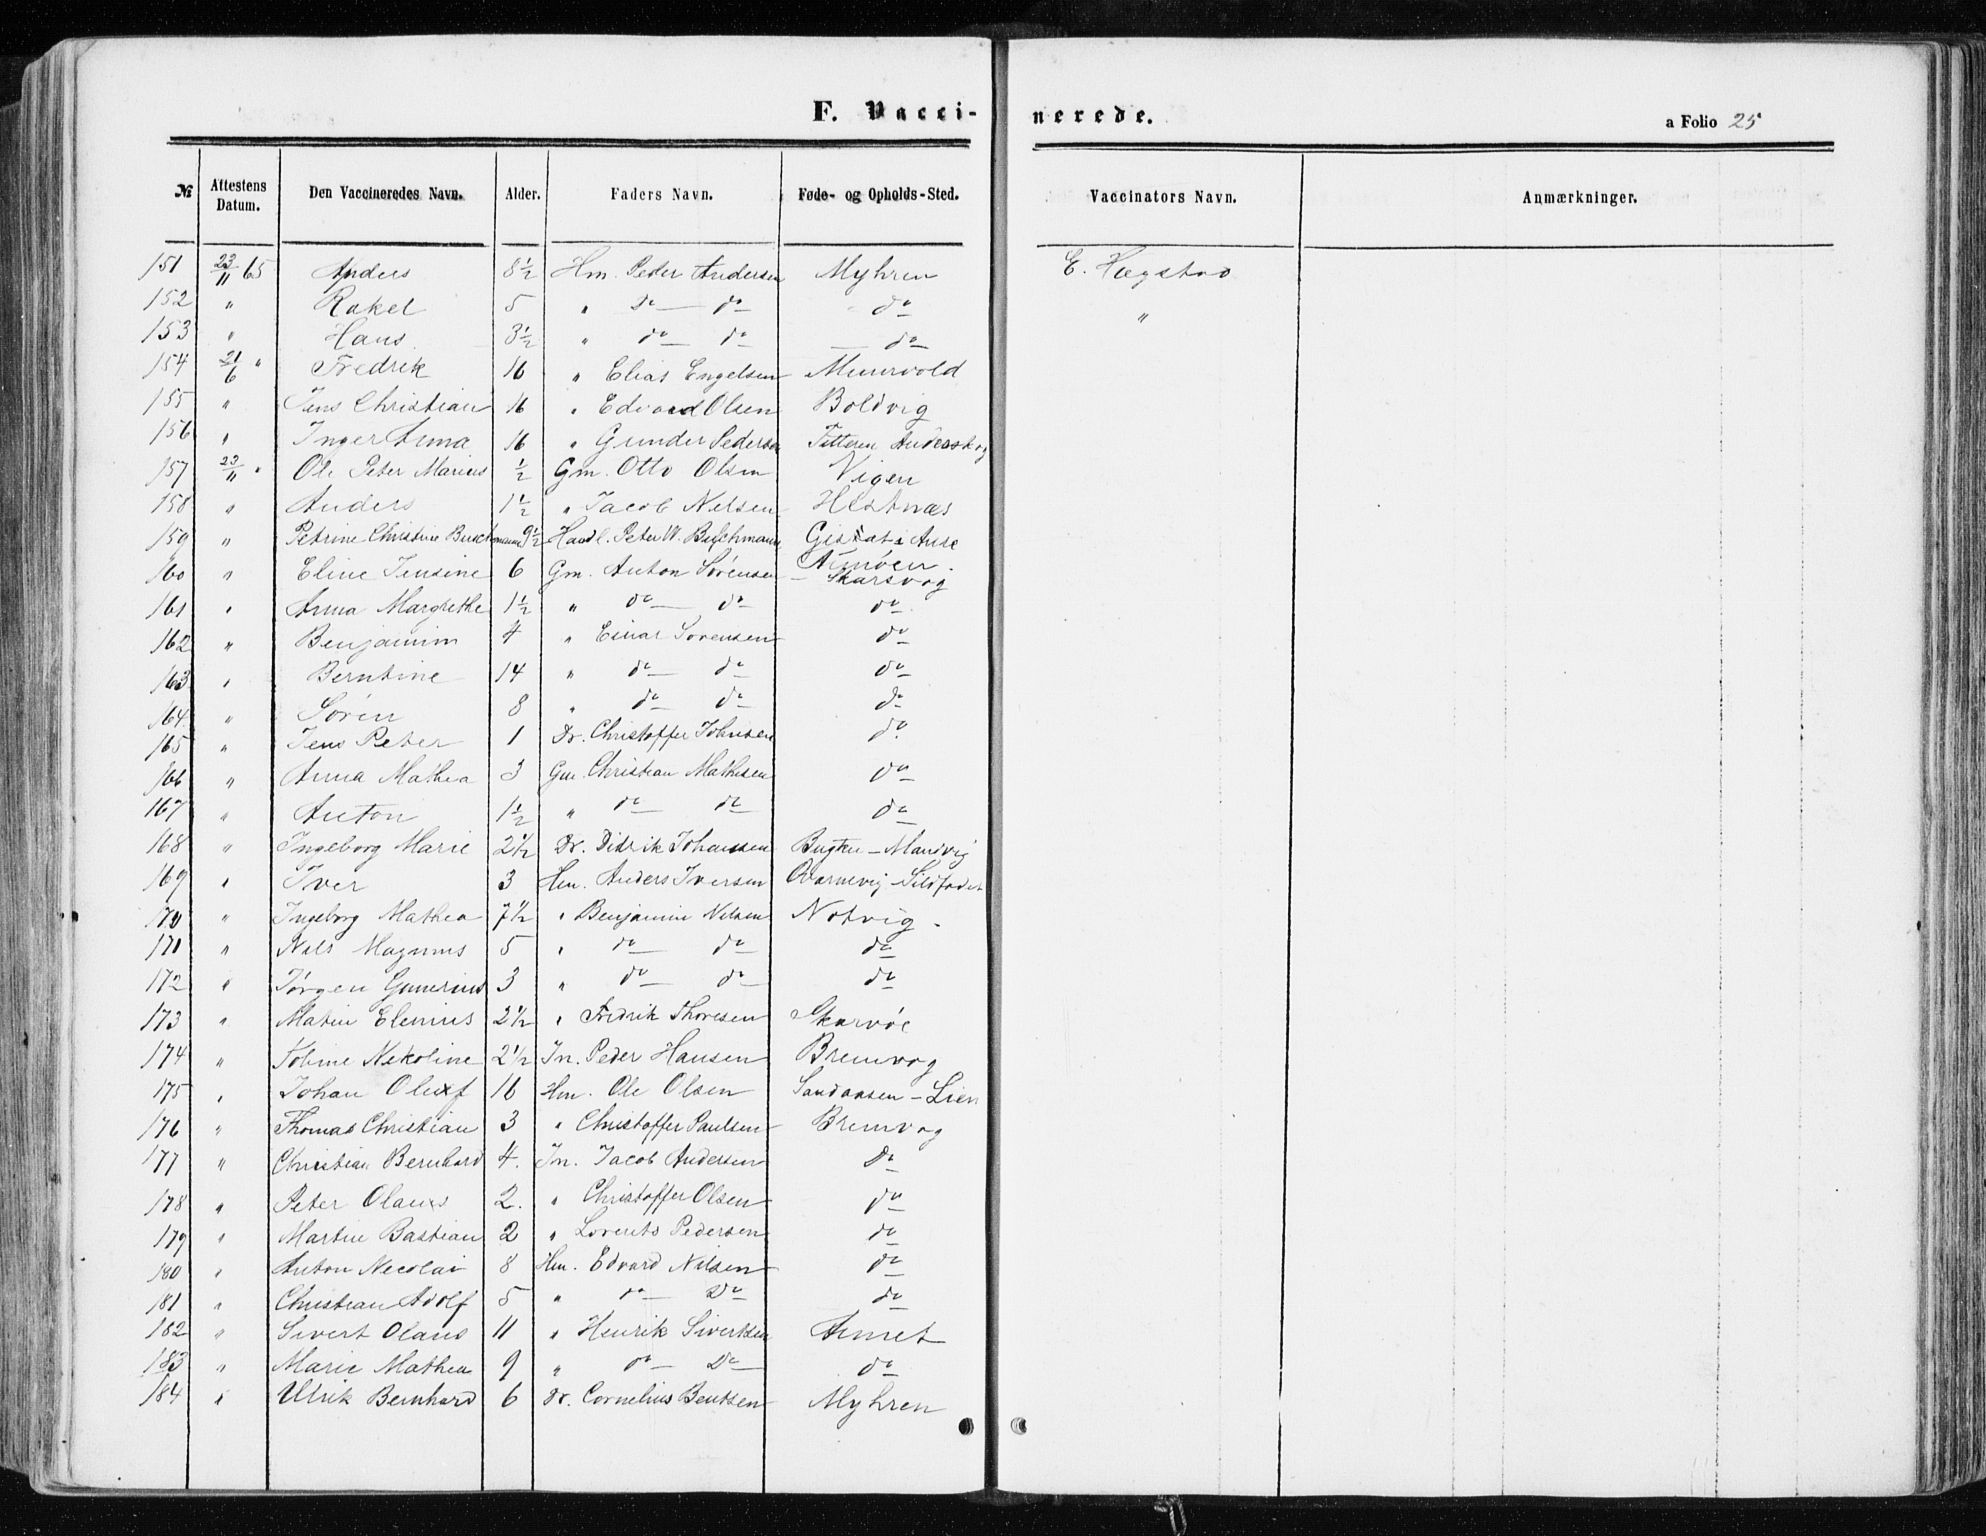 F. Vacci-nerede.
a Folio 25
№ Attestens Datum. Den Vaccineredes Navn. Alder. Faders Navn. Føde- og Opholds-Sted. Vaccinators Navn. Anmærkninger.
151 23/11 65 Anders 8 1/2 Hm. Peder Andersen Myhren E. Hegstad
152 " Rakel 5 " do do do
153 " Hans 3 1/2 " do do do "
154 21/6 " Fredrik 16 " Elias Engelsen
155 " Jens Christian 16 " Edvard Olsen Boldvig
156 " Inger Anna 16 " Gunder Pedersen
157 23/11 " Ole Peter Marius 1/2 Gm. Otto Olsen Vigen
158 " Anders 1 1/2 " Jacob Nilsen Hestnæs
159 " Petrine Christine Buschmann 9 1/2 Handl. Peter W. Buschmann
160 " Eline Jensine 6 Gm. Anton Sørensen Skarsvog
161 " Anna Margrethe 1 1/2 " do do do
162 " Benjamin 4 " Einar Sørensen do
163 " Berntine 14 " do do do
164 " Søren 8 " do do do
165 " Jens Peter 1 Dr. Christoffer Johnsen do
166 " Anna Mathea 3 Gm. Christian Mathisen do
167 " Anton 1 1/2 " do do do
168 " Ingeborg Marie 2 1/2 Dr. Didrik Johansen Bugten - Mandvig
169 " Iver 3 Hm. Anders Iversen Qvarnevig - Sildfadet
170 " Ingeborg Mathea 7 1/2 " Benjamin Nilsen Notvig
171 " Nils Magnus 5 " do do do
172 " Jørgen Gunerius 3 " do do do
173 " Martin Elenius 2 1/2 " Fredrik Thoresen Skarvøe
174 " Tobine Nekoline 2 1/2 In. Peder Hansen Bremvog
175 " Johan Oluf 16 Hm. Ole Olsen Sandaasen - Lien
176 " Thomas Christian 3 " Christoffer Paulsen Bremvog
177 " Christian Bernhard 4. In. Jacob Andersen Do
178 " Peter Olaus 2. " Christoffer Olsen do
179 " Martin Bastian 2 " Lorents Pedersen do
180 " Anton Necolai 8 Hm. Edvard Nilsen do
181 " Christian Adolf 5 " do Do do
182 " Sivert Olaus 11 " Henrik Sivertsen Aunet
183 " Marie Mathea 9 " do Do do
184 " Ulrik Bernhard 6 Dr. Cornelius Bentsen Myhren